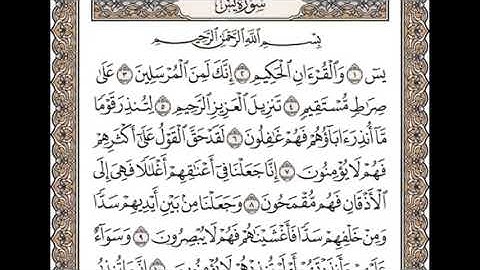 سُورَةُ يسٓ
بِسْمِ ٱللَّهِ ٱلرَّحْمَٰنِ ٱلرَّحِيمِ
يسٓ ١ وَٱلْقُرْءَانِ ٱلْحَكِيمِ ٢ إِنَّكَ لَمِنَ ٱلْمُرْسَلِينَ ٣ عَلَىٰ
صِرَٰطٍ مُّسْتَقِيمٍ ٤ تَنزِيلَ ٱلْعَزِيزِ ٱلرَّحِيمِ ٥ لِتُنذِرَ قَوْمًا
مَّآ أُنذِرَ ءَابَآؤُهُمْ فَهُمْ غَٰفِلُونَ ٦ لَقَدْ حَقَّ ٱلْقَوْلُ عَلَىٰٓ أَكْثَرِهِمْ
فَهُمْ لَا يُؤْمِنُونَ ٧ إِنَّا جَعَلْنَا فِىٓ أَعْنَٰقِهِمْ أَغْلَٰلًا فَهِىَ إِلَى
ٱلْأَذْقَانِ فَهُم مُّقْمَحُونَ ٨ وَجَعَلْنَا مِنۢ بَيْنِ أَيْدِيهِمْ سَدًّا
وَمِنْ خَلْفِهِمْ سَدًّا فَأَغْشَيْنَٰهُمْ فَهُمْ لَا يُبْصِرُونَ ٩ وَسَوَآءٌ
عَلَيْهِمْ ءَأَنذَرْتَهُمْ أَمْ لَمْ تُنذِرْهُمْ لَا يُؤْمِنُونَ ١٠ إِنَّمَا تُنذِرُ